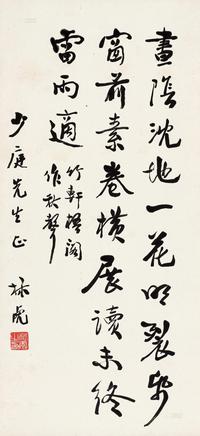 畫陰沈地一花明裂帛
窗前素卷橫展讀未終
雷雨適
竹軒梧閣
作秋聲
少庭先生正
林虎